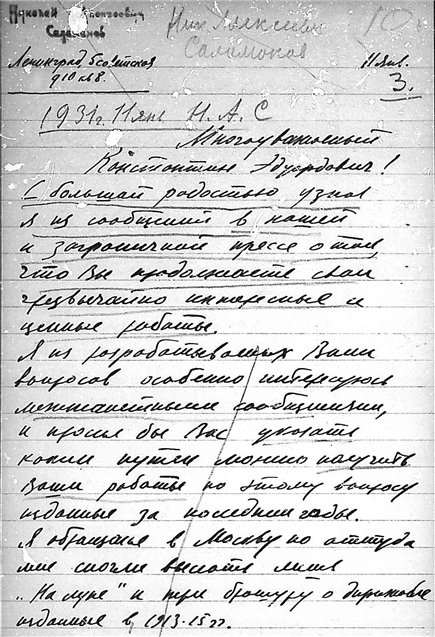 Николай Алексеевич
Салamanов
Ник Алексеев
Ленинград, 6 советская
д 10 кв 8.
11 янв.
3.
1931 г. 11 янв Н. А. С
Многоуважаемый
Константин Эдуардович!
С большой радостью узнал
я из сообщений в нашей
и заграничной прессе о том,
что Вы продолжаете свои
чрезвычайно интересные и
ценные работы.
Я из разрабатываемых Вами
вопросов особенно интересуюсь
межпланетными сообщениями,
и просил бы Вас указать
каким путем можно получить
Ваши работы по этому вопросу
изданные за последние годы.
Я обращался в Москву но оттуда
мне смогли выслать лишь
„На луне" и три брошуры о дирижабле
изданные в 1913-15 гг.